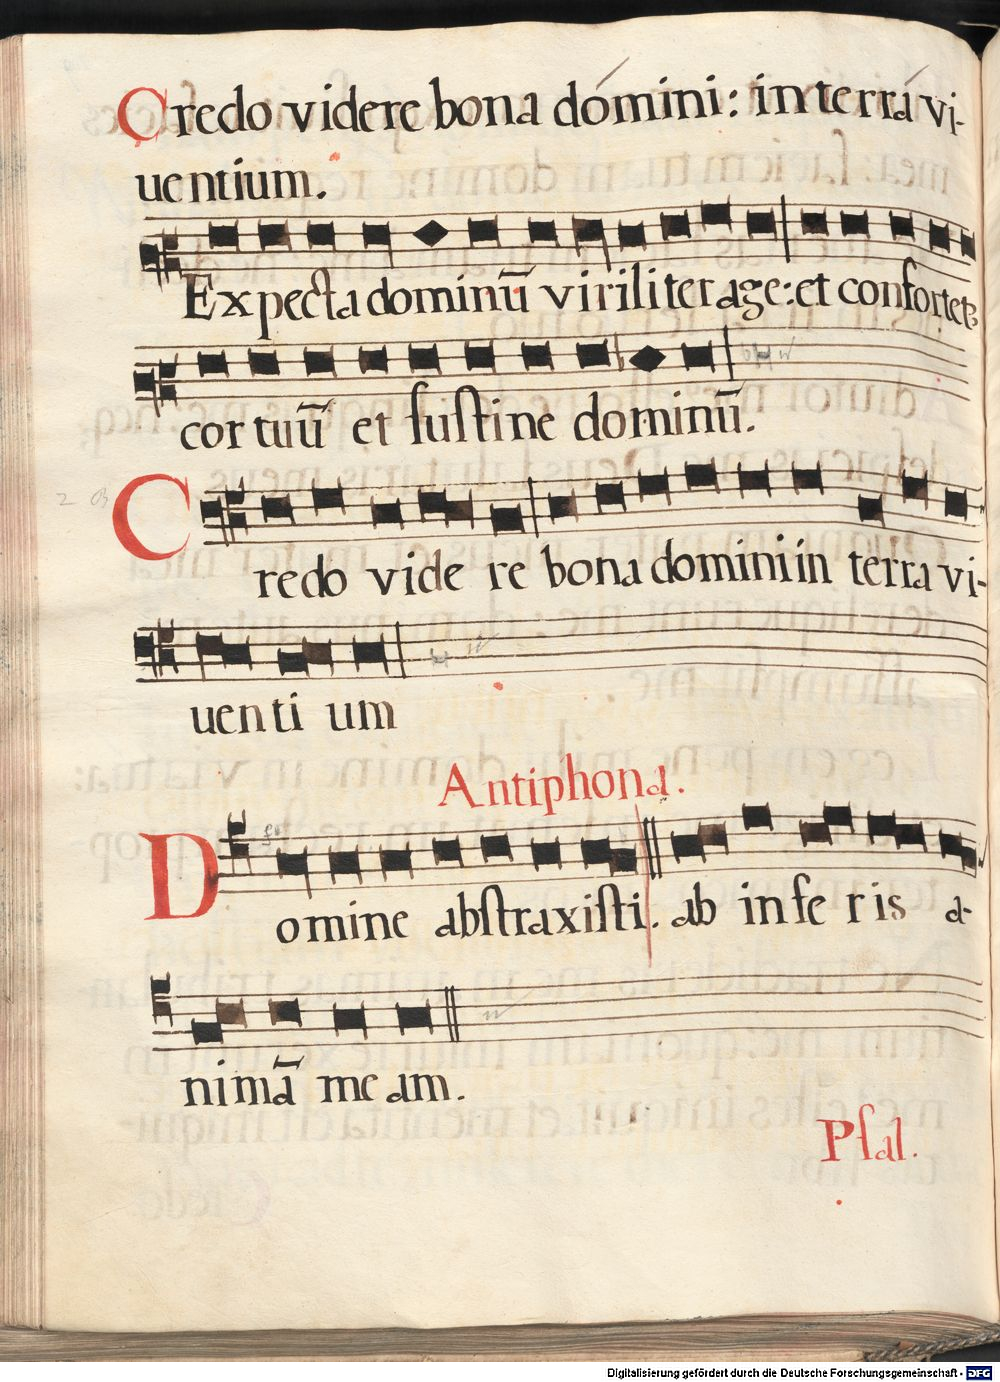 Credo videre bona dómini: in terra vi-
uentium.
Expecta dominū viriliter age: et confortet᷒
cor tuū et ſuſtine dominū.
2
Credo vide re bona domini in terra vi-
uenti um
Antiphona.
Domine abſtraxiſti. ab infe ris a-
nimā meam.
Pſal.
Digitalisierung gefördert durch die Deutsche Forschungsgemeinschaft - DFG